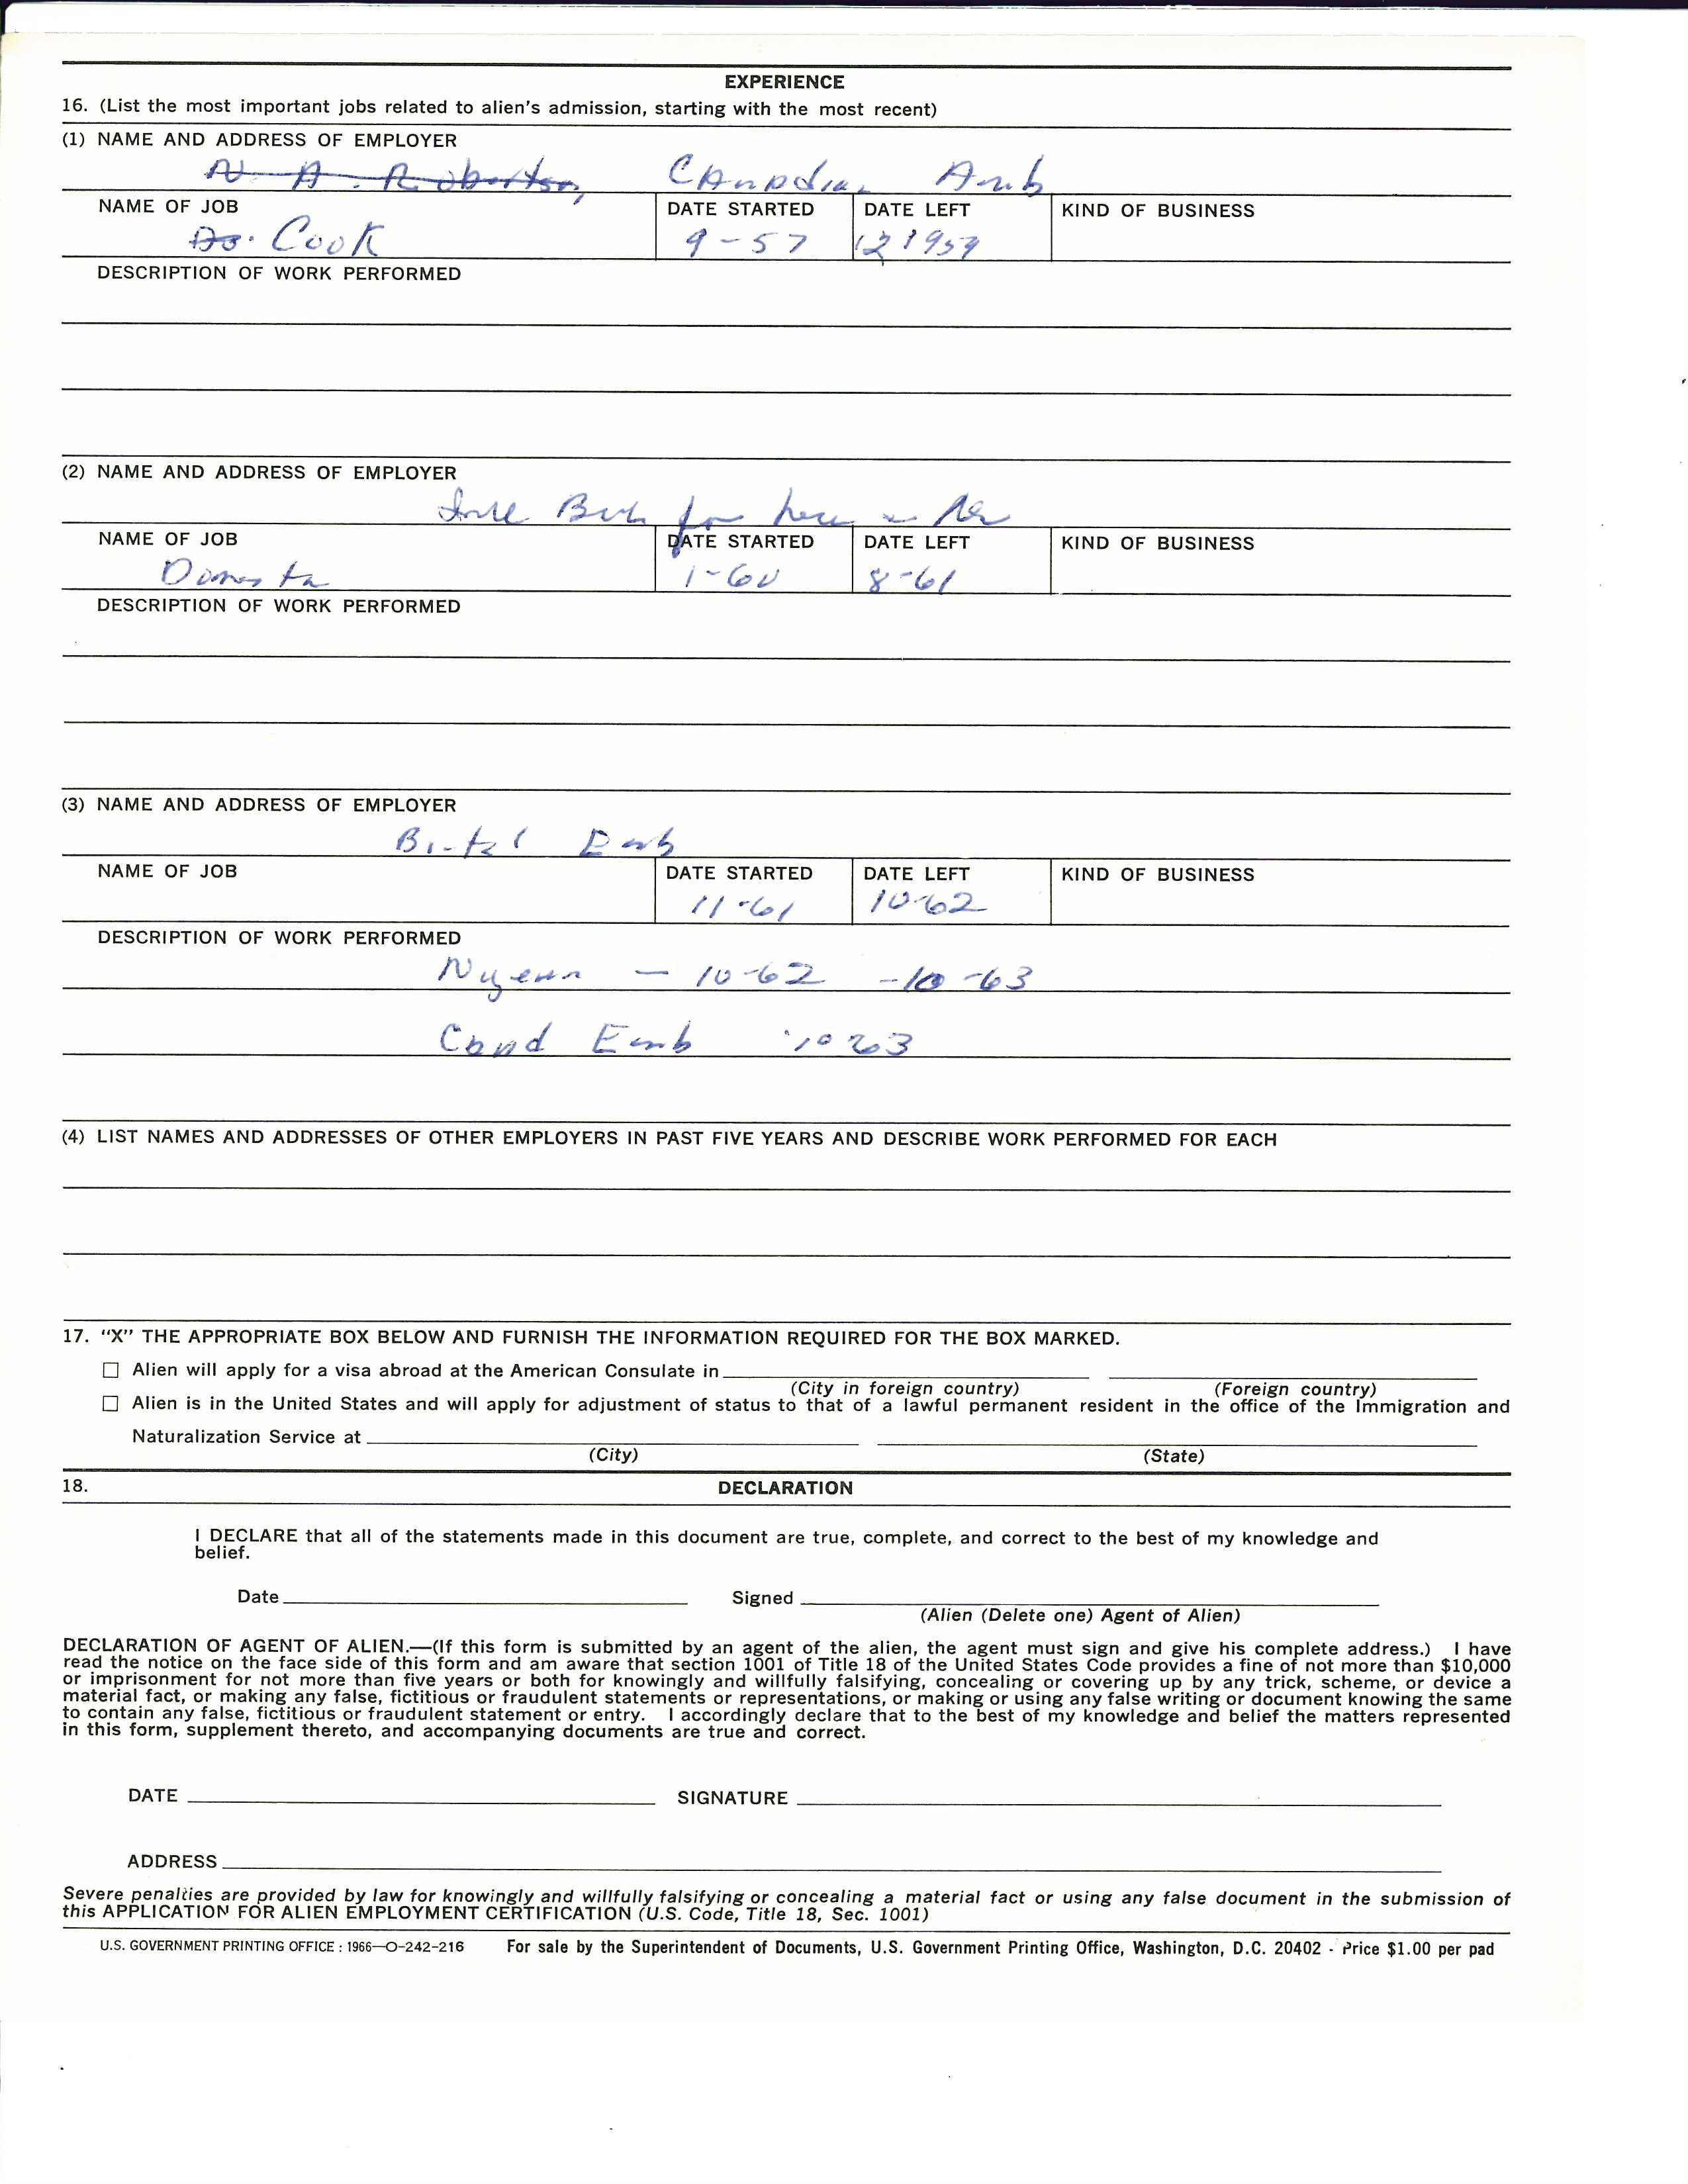 EXPERIENCE
16. (List the most important jobs related to alien's admission, starting with the most recent)
(1) NAME AND ADDRESS OF EMPLOYER
N. A. Robertson, Canadian Amb
NAME OF JOB DATE STARTED DATE LEFT KIND OF BUSINESS
Cook 9-57 12 1959
DESCRIPTION OF WORK PERFORMED
(2) NAME AND ADDRESS OF EMPLOYER
Bank for
NAME OF JOB DATE STARTED DATE LEFT KIND OF BUSINESS
1-60 8-61
DESCRIPTION OF WORK PERFORMED
(3) NAME AND ADDRESS OF EMPLOYER
Emb
NAME OF JOB DATE STARTED DATE LEFT KIND OF BUSINESS
11-61 10-62
DESCRIPTION OF WORK PERFORMED
— 10-62 -10-63
Emb 10 63
(4) LIST NAMES AND ADDRESSES OF OTHER EMPLOYERS IN PAST FIVE YEARS AND DESCRIBE WORK PERFORMED FOR EACH
17. "X" THE APPROPRIATE BOX BELOW AND FURNISH THE INFORMATION REQUIRED FOR THE BOX MARKED.
☐ Alien will apply for a visa abroad at the American Consulate in
(City in foreign country) (Foreign country)
☐ Alien is in the United States and will apply for adjustment of status to that of a lawful permanent resident in the office of the Immigration and
Naturalization Service at
(City) (State)
18. DECLARATION
I DECLARE that all of the statements made in this document are true, complete, and correct to the best of my knowledge and
belief.
Date Signed
(Alien (Delete one) Agent of Alien)
DECLARATION OF AGENT OF ALIEN.—(If this form is submitted by an agent of the alien, the agent must sign and give his complete address.) I have
read the notice on the face side of this form and am aware that section 1001 of Title 18 of the United States Code provides a fine of not more than $10,000
or imprisonment for not more than five years or both for knowingly and willfully falsifying, concealing or covering up by any trick, scheme, or device a
material fact, or making any false, fictitious or fraudulent statements or representations, or making or using any false writing or document knowing the same
to contain any false, fictitious or fraudulent statement or entry. I accordingly declare that to the best of my knowledge and belief the matters represented
in this form, supplement thereto, and accompanying documents are true and correct.
DATE SIGNATURE
ADDRESS
Severe penalties are provided by law for knowingly and willfully falsifying or concealing a material fact or using any false document in the submission of
this APPLICATION FOR ALIEN EMPLOYMENT CERTIFICATION (U.S. Code, Title 18, Sec. 1001)
U.S. GOVERNMENT PRINTING OFFICE : 1966—O-242-216 For sale by the Superintendent of Documents, U.S. Government Printing Office, Washington, D.C. 20402 - Price $1.00 per pad